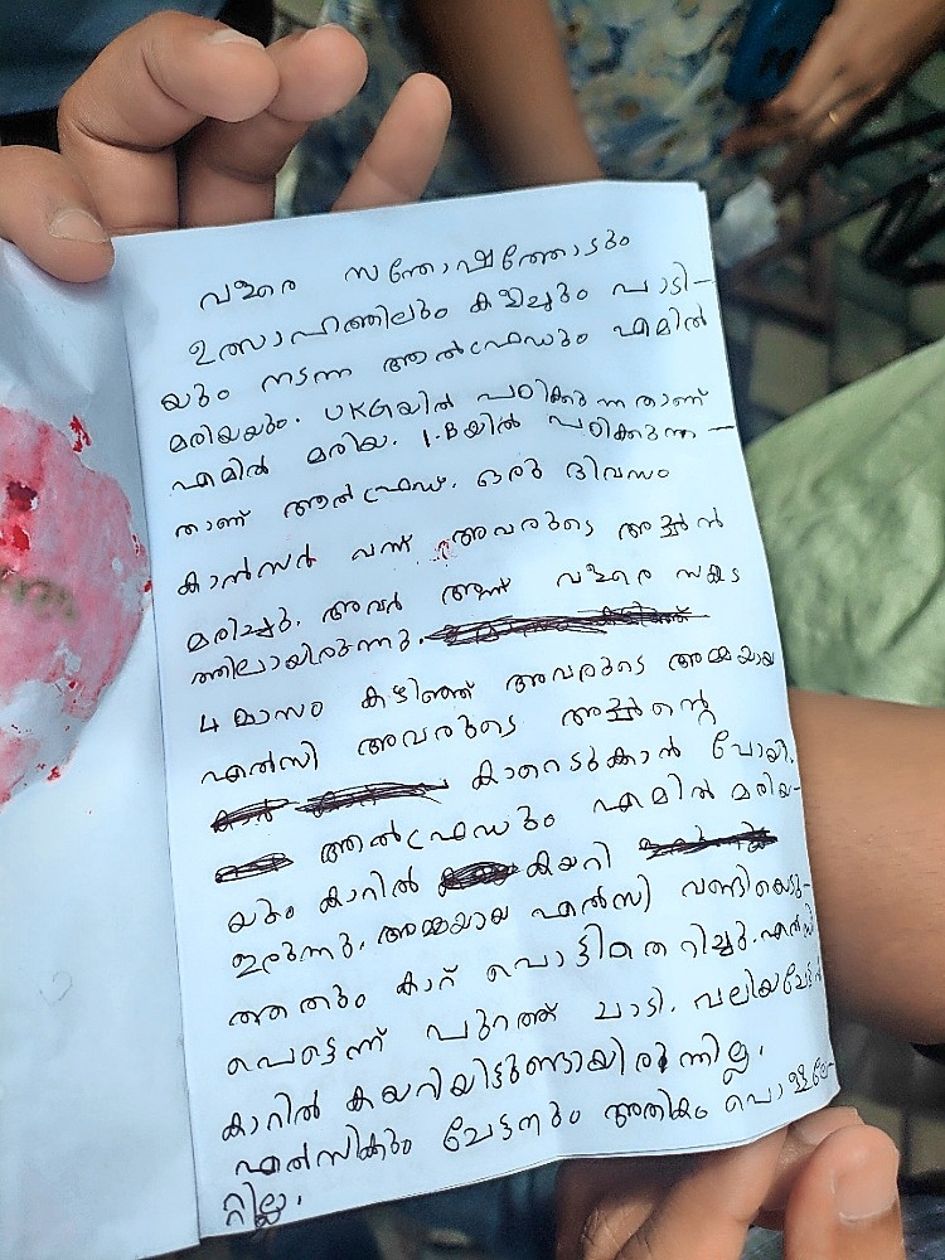 വളരെ സന്തോഷത്തോടും
ഉത്സാഹത്തിലും കളിച്ചും പാടി-
യും നടന്ന ആൽഫ്രഡും എമിൽ
മരിയയും. UKGയിൽ പഠിക്കുന്നതാണ്
എമിൽ മരിയ. 1-Bയിൽ പഠിക്കുന്ന-
താണ് ആൽഫ്രഡ്. ഒരു ദിവസം
കാൻസർ വന്ന് അവരുടെ അച്ഛൻ
മരിച്ചു. അവർ അന്ന് വളരെ സങ്കട
ത്തിലായിരുന്നു.
4 മാസം കഴിഞ്ഞ് അവരുടെ അമ്മയായ
എൽസി അവരുടെ അച്ഛന്റെ
കാറെടുക്കാൻ പോയി.
ആൽഫ്രഡും എമിൽ മരിയ-
യും കാറിൽ കയറി
ഇരുന്നു. അമ്മയായ എൽസി വണ്ടിയെടു-
ത്തതും കാറ് പൊട്ടിതെറിച്ചു. എൽസി
പെട്ടെന്ന് പുറത്ത് ചാടി. വലിയചേട്ടൻ
കാറിൽ കയറിയിട്ടുണ്ടായിരുന്നില്ല.
എൽസികും ചേട്ടനും അതികം പൊള്ളലേ-
റ്റില്ല.